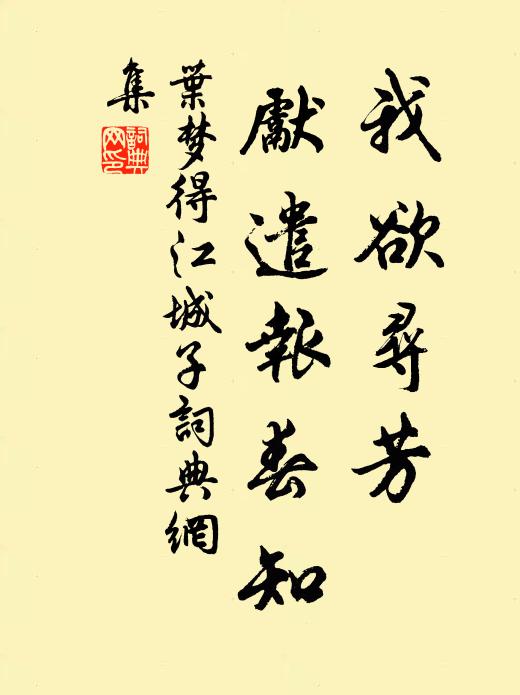 我欲尋芳
獻遣報春知
葉梦得江城子詞典網
集
詞典
网印